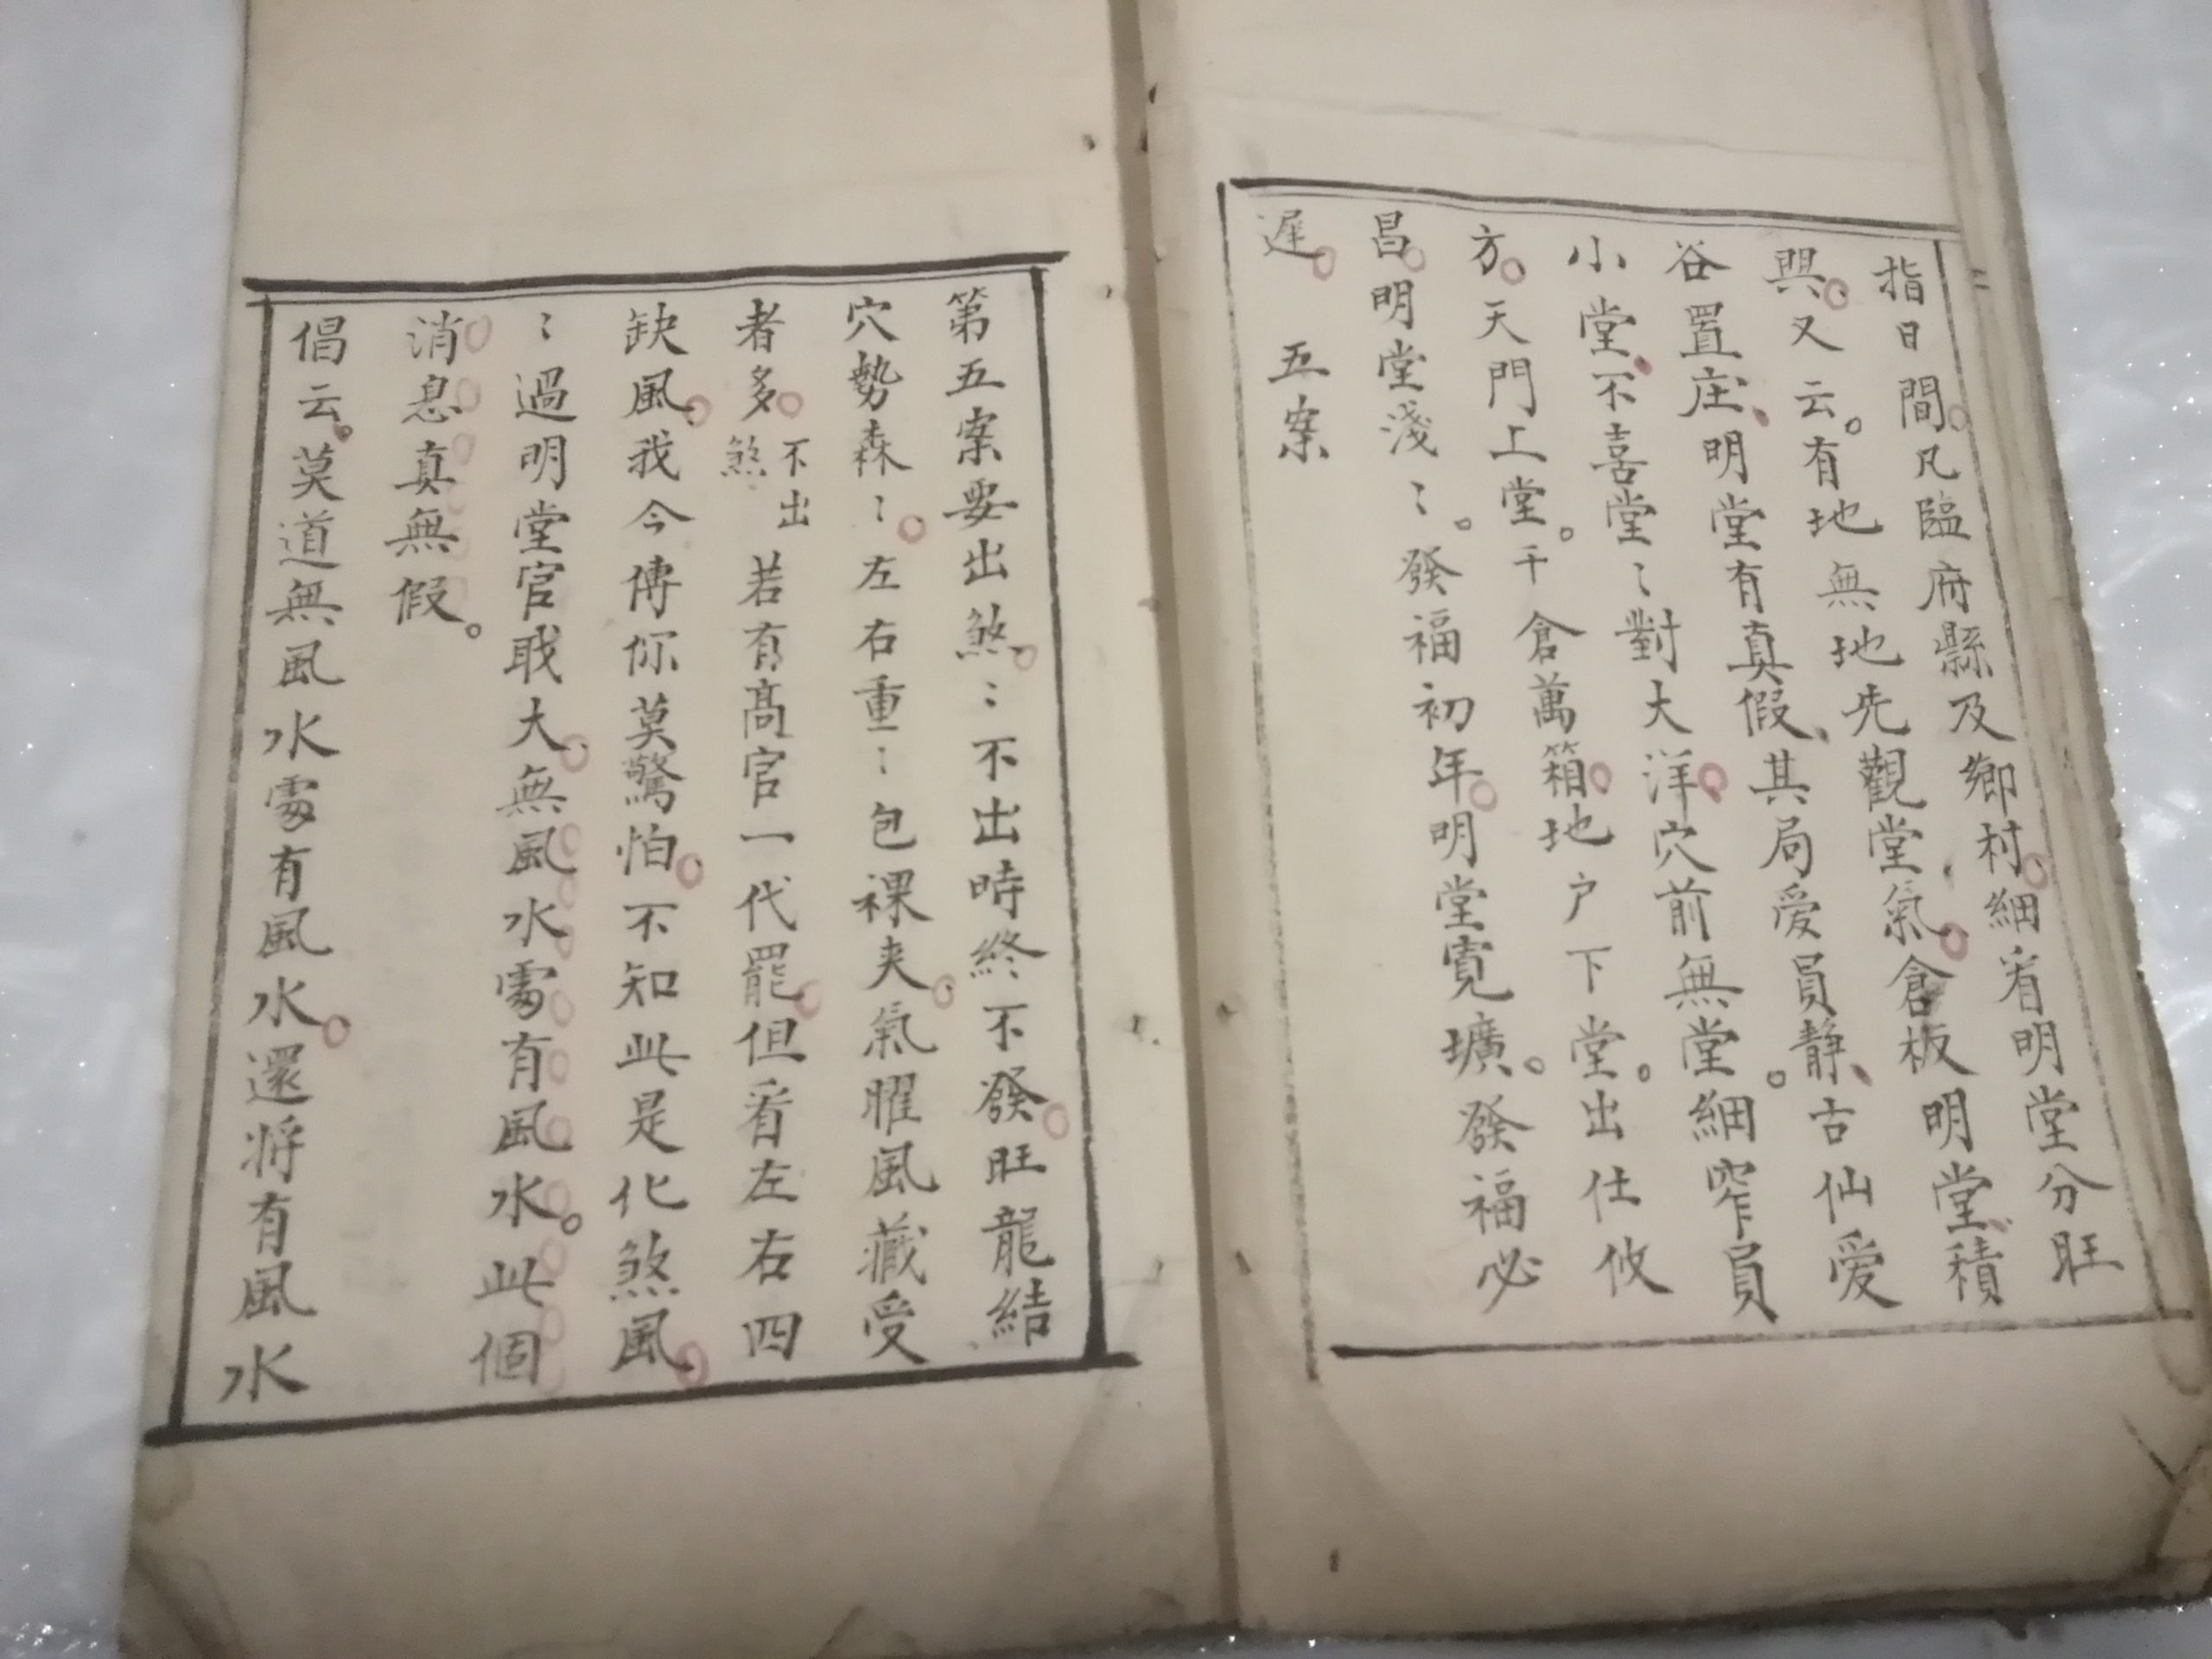 指日間。凡臨府縣及鄉村。細看明堂分旺
興。又云。有地無地先觀堂氣。倉板明堂、積
谷置庄、明堂有真假、其局爱員静、古仙爱
小堂、不喜堂〻對大洋。穴前無堂。細窄員
方。天門上堂。千倉萬箱。地户下堂。出仕攸
昌。明堂淺〻。發福初年。明堂寬壙。發福必
遲。　五案
第五案要出煞。〻不出時終不發。旺龍結
穴勢森〻。左右重〻包裸夹。氣曜風藏受
者多。不出煞若有髙官一代罷。但看左右四
缺風。我今傳你莫驚怕。不知此是化煞風。
〻過明堂官戝大。無風水處有風水。此個
消息真無假。
倡云。莫道無風水處有風水。還将有風水